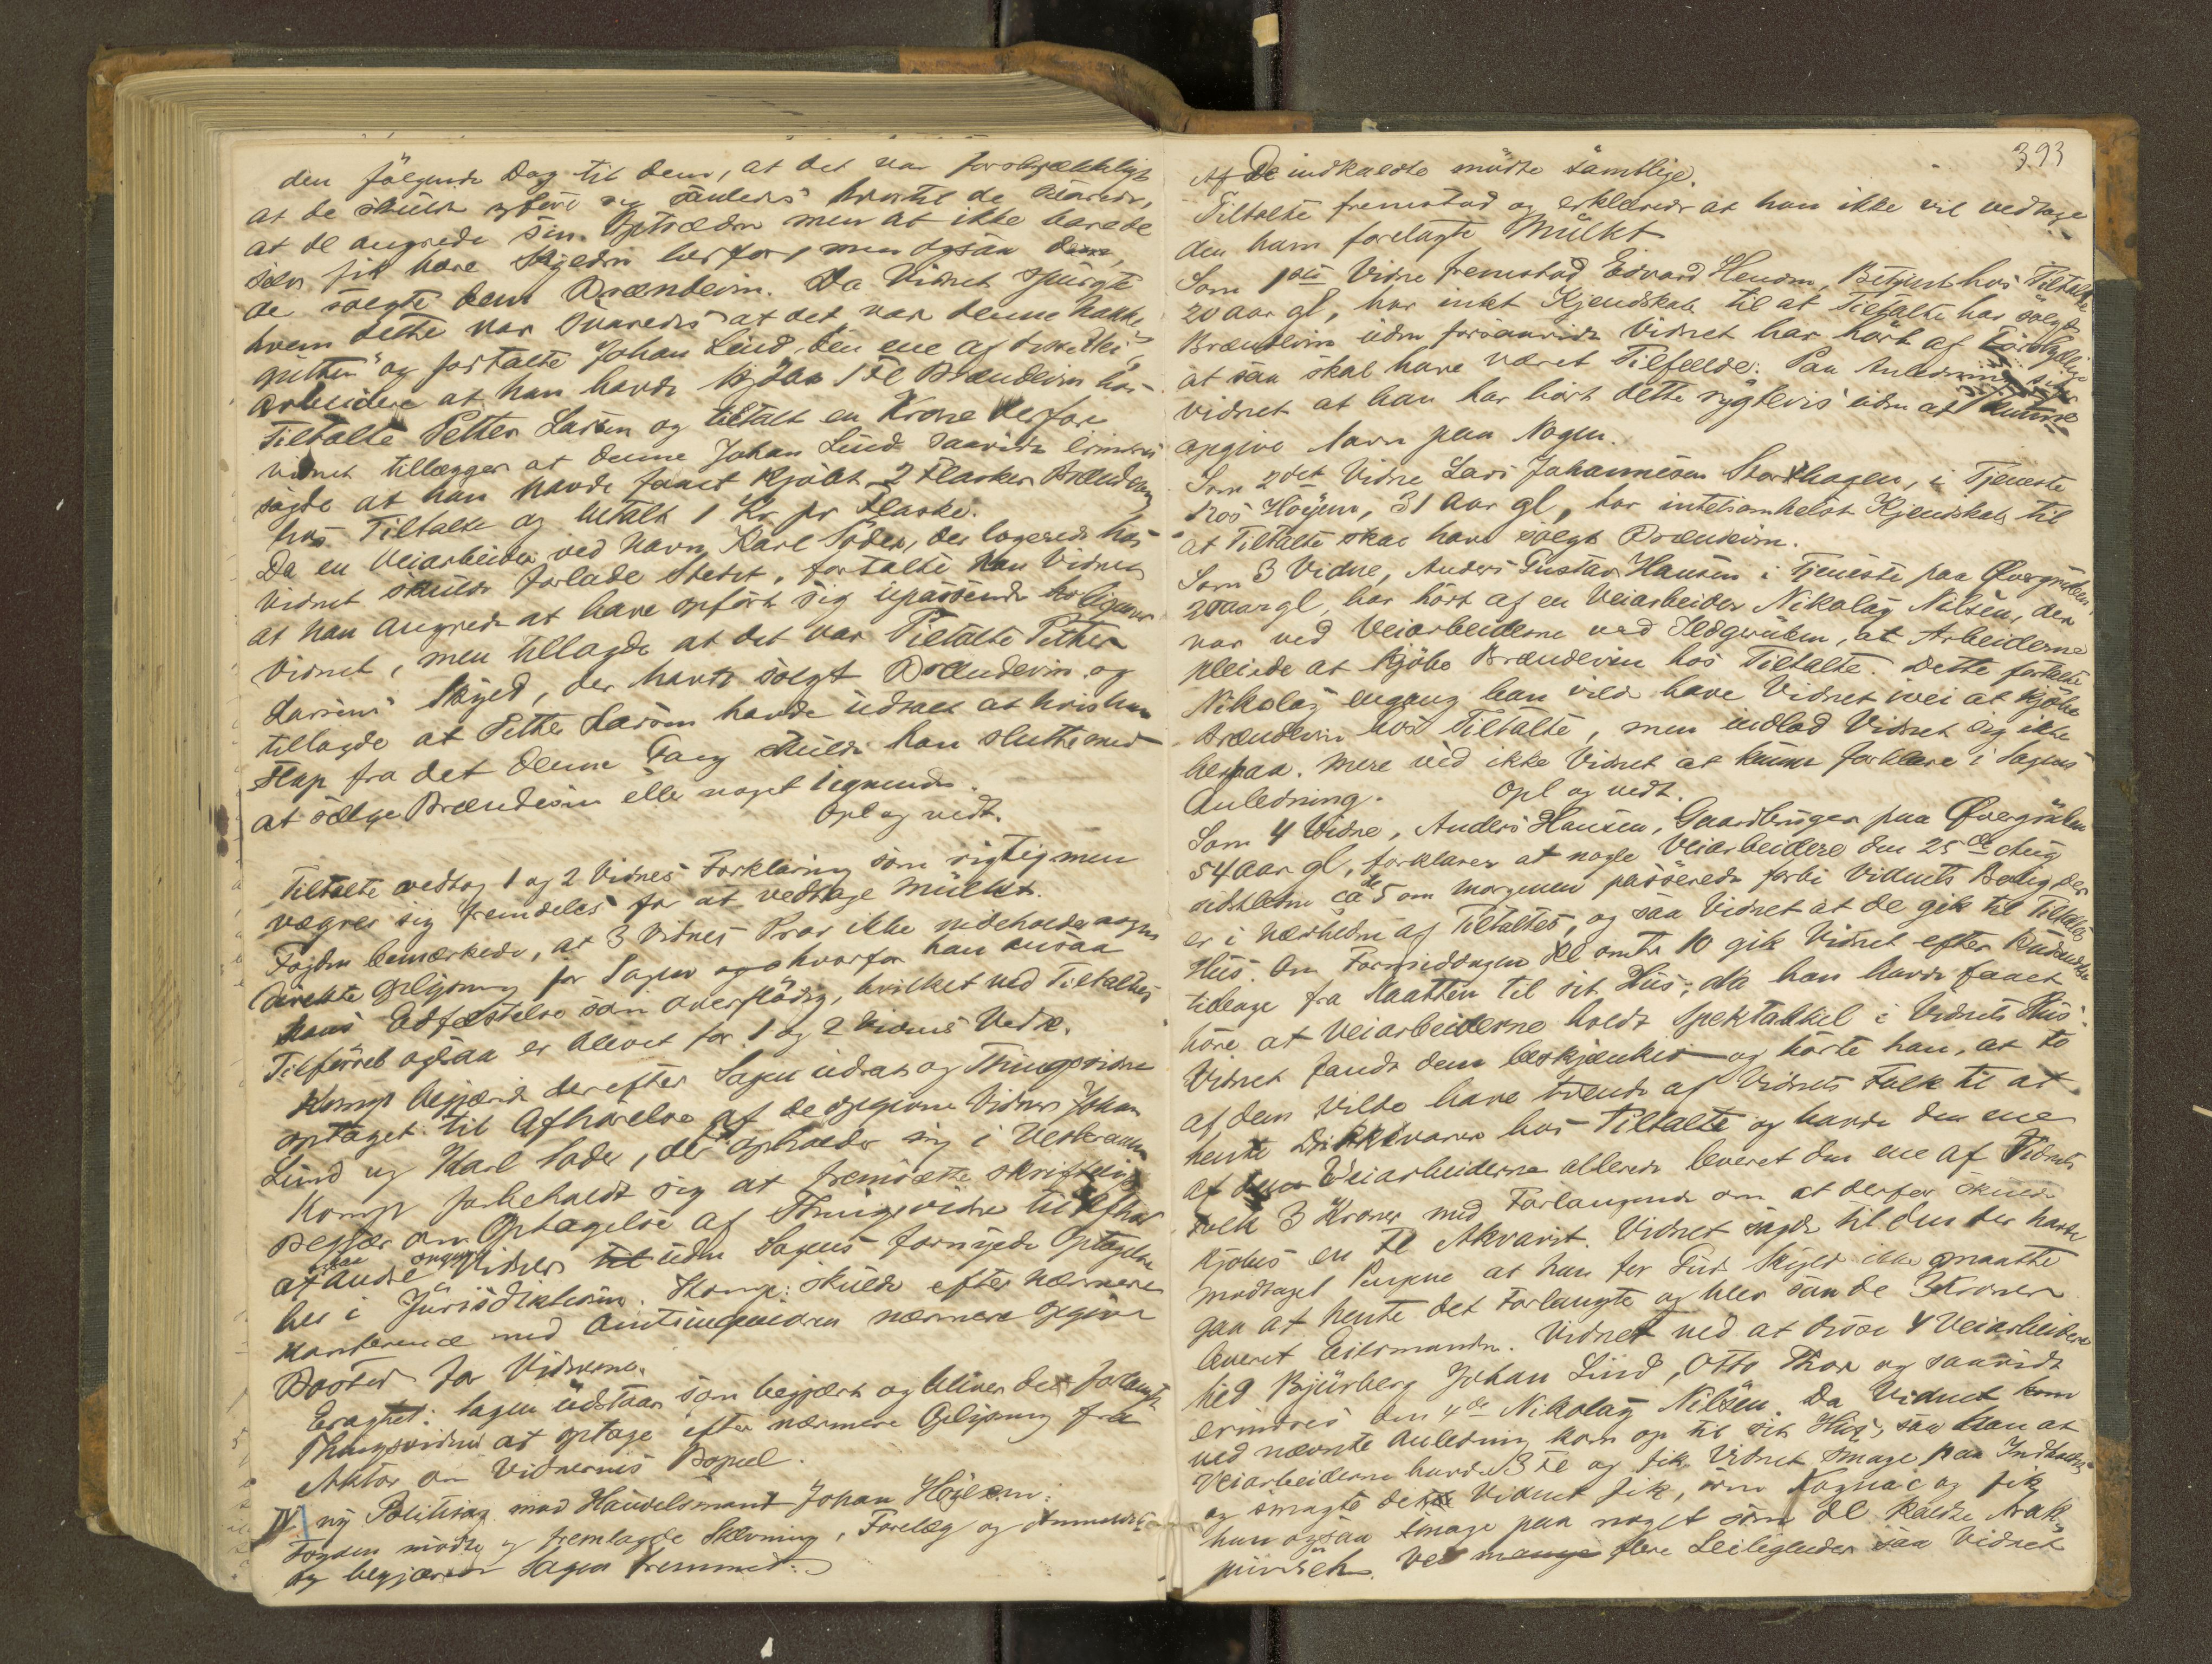 den følgende Dag til dem, at det var forskrækkeligt
at de skulde opføre sig saaledes hvortil de svarede,
at de angrede sin Optræden men at ikke barede
selv fik have Skylden herfor, men ogsaa den,
de solgte dem Brændevin. Da Vidnet spurgte
hvem dette var svaredes at det var denne
gutten" og fortalte Johan Lind, den ene af disse Vei-
arbeidere at han havde kjøbt 1 Fl Brændevin hos
Tiltalte Petter Larsen og betalt en Krone derfor
Vidnet tillægger at denne Johan Lind saavidt erindres
sagde at han havde faaet kjøbt 2 Flasker Brændevin
hos Tiltalte og betalt 1 Kr pr Flaske.
Da en Veiarbeider ved Navn Karl Söder, der logerede hos
Vidnet skulde forlade Stedet, fortalte han Vidnet
at han angrede at have opført sig upassende
Vidnet, men tillagde at det var Tiltalte Petter
Larsens Skyld, der havde solgt Brændevin og
tillagde at Petter Larsen havde udtalt at hvis han
slap fra det denne Gang skulde han slutte med
at sælge Brændevin eller noget lignende.
Opl og vedt.
Tiltalte vedtog 1 og 2 Vidnes Forklaring som rigtig men
vægrer sig fremdeles for at vedtage Mulkt.
Fogden bemærkede, at 3 Vidnes Prov ikke indeholder nogen
direkte Oplysning for Sagen og hvorfor han ansaa
hans Edfæstelse som overflødig, hvilket ved Tiltaltes
Tilførsel ogsaa er blevet for 1 og 2 Vidnes Vedk.
Komp begjærede derefter Sagen udsat og Thingsvidne
optaget til Afhørelse af de opgivne Vidner Johan
Lind og Karl Soder, der opholder sig i
Komp forbeholdt sig at fremsætte skriftlig
Begjær om Optagelse af Thingsvidne til Afhør
af andre Vidner uden Sagens fornyede Optagelse
her i Jurisdiktionen. Komp: skulde efter nærmere
Konference med Amtsingeniøren nærmere opgive
Bosted for Vidnerne.
Eragtet: Sagen udstaar som begjært og bliver det forlangte
Thingsvidne at optage efter nærmere Oplysning fra
Aktor om Vidnernes Bopæl.
IV ny Politisag mod Handelsmand Johan Høiem:
Fogden mødte og fremlagde Stævning, Forelæg og Anmeldelse
og begjærede Sagen fremmet:
393
Af De indkaldte mødte samtlige.
Tiltalte fremstod og erklærede at han ikke vil vedtage
den ham forelagte Mulkt
Som 1ste Vidne fremstod Edvard Hendn, Betjent hos Tiltalte
20 aar gl, har intet Kjendskab til at Tiltalte har solgt
Brændevin uden forsaavidt Vidnet har hørt af
at saa skal have været Tilfælde. Paa Anledning siger
Vidnet at han har hørt dette rygtevis uden at kunne
opgive Navn paa Nogen.
Som 2det Vidne Lars Johannesen Storhagen, i Tjeneste
hos Høyem, 31 Aar gl, har intetsomhelst Kjendskab til
at Tiltalte skal have solgt Brændevin.
Som 3 Vidne, Anders Gustav Hansen i Tjeneste paa
20 aar gl, har hørt af en Veiarbeider Nikolay Nilsen, der
var ved Veiarbeiderne ved, at Arbeiderne
pleiede at kjøbe Brændevin hos Tiltalte. Dette fortalte
Nikolay engang han vilde have Vidnet ivei at kjøbe
Brændevin hos Tiltalte, men indlod Vidnet sig ikke
herpaa. Mere ved ikke Vidnet at kunne forklare i Sagens
Anledning. Opl og vedt.
Som 4 Vidne, Anders Hansen, Gaardbruger paa
54 aar gl, forklarer at nogle Veiarbeidere den 25de Aug
sidstleden ca 5 om Morgenen passerede forbi Vidnets Bolig, der
er i Nærheden af Tiltaltes, og saa Vidnet at de gik til Tiltaltes
Hus. Om Formiddagen Kl omtr 10 gik Vidnet efter
tilbage fra Slaatten til sit Hus; da han havde faaet
høre at Veiarbeiderne holdt Spektakkel i Vidnets Hus.
Vidnet fandt dem beskjænket og hørte han, at to
af dem vilde have tvende af Vidnets Folk til at
hente Drikkevarer hos Tiltalte og havde den ene
af Veiarbeiderne allerede leveret den ene af Vidnets
Folk 3 Kroner med Forlangende om at derfor skulde
kjøbes en Fl Akvavit. Vidnet sagde til den der havde
modtaget Pengene at han for Guds Skyld ikke maatte
gaa at hente det Forlangte og blev saa de 3 Kroner
leveret Eiermanden. Vidnet ved at disse 4 Veiarbeidere
hed Bjurberg, Johan Lind, Otto Thor og saavidt
erindres den 4de Nikolay Nilsen. Da Vidnet
ved nævnte Anledning kom op til sit Hus, saa han at
Veiarbeiderne havde 3 Fl og fik Vidnet smage paa Indholdet
og smagte det Vidnet fik, som Kognac og fik
han ogsaa smage paa noget som de kaldte Arak
punsch. Ved mange flere Leiligheder saa Vidnet